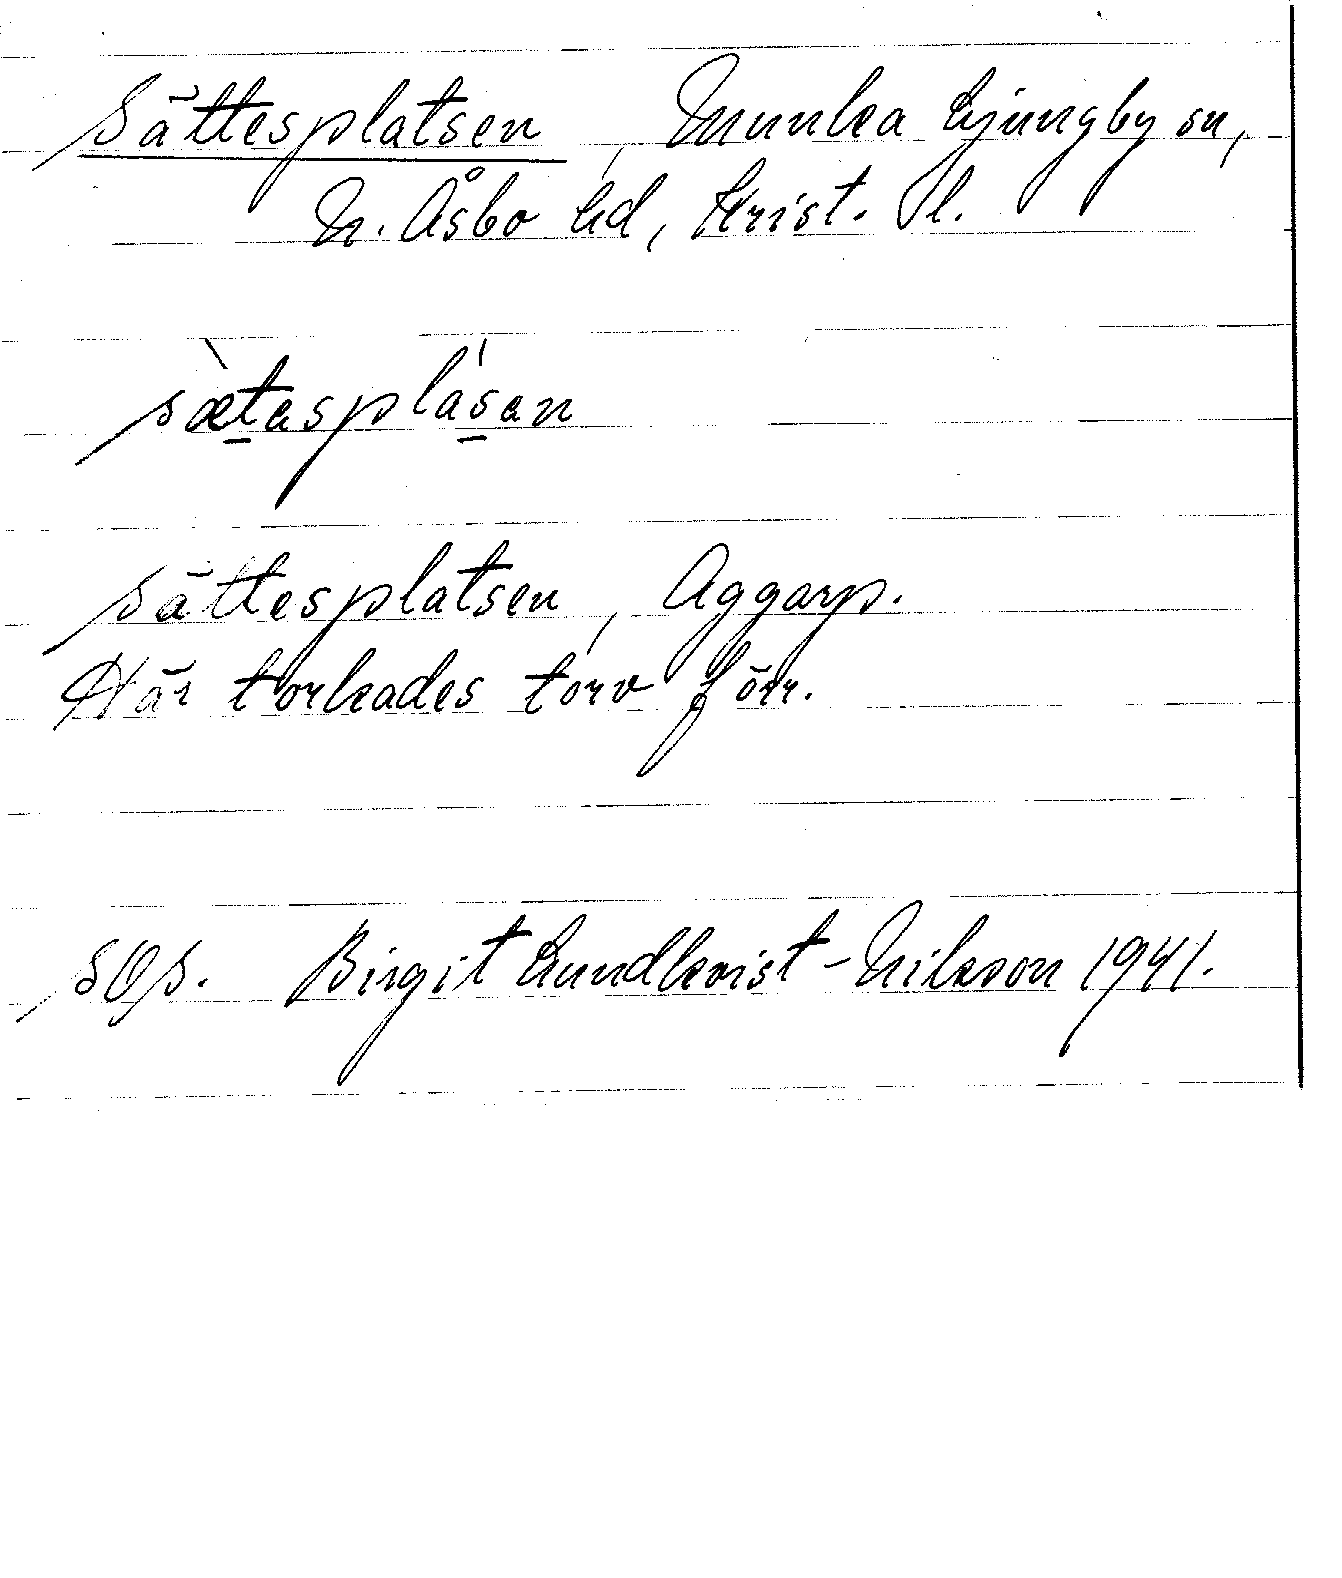 Sättesplatsen, Munka Ljungby sn,
N. Åsbo hd, Krist. l.
sæ̀tasplásan
Sättesplatsen, Aggarp.
Här torkades torv förr.
SOS. Birgit Lundkvist-Nilsson 1941.